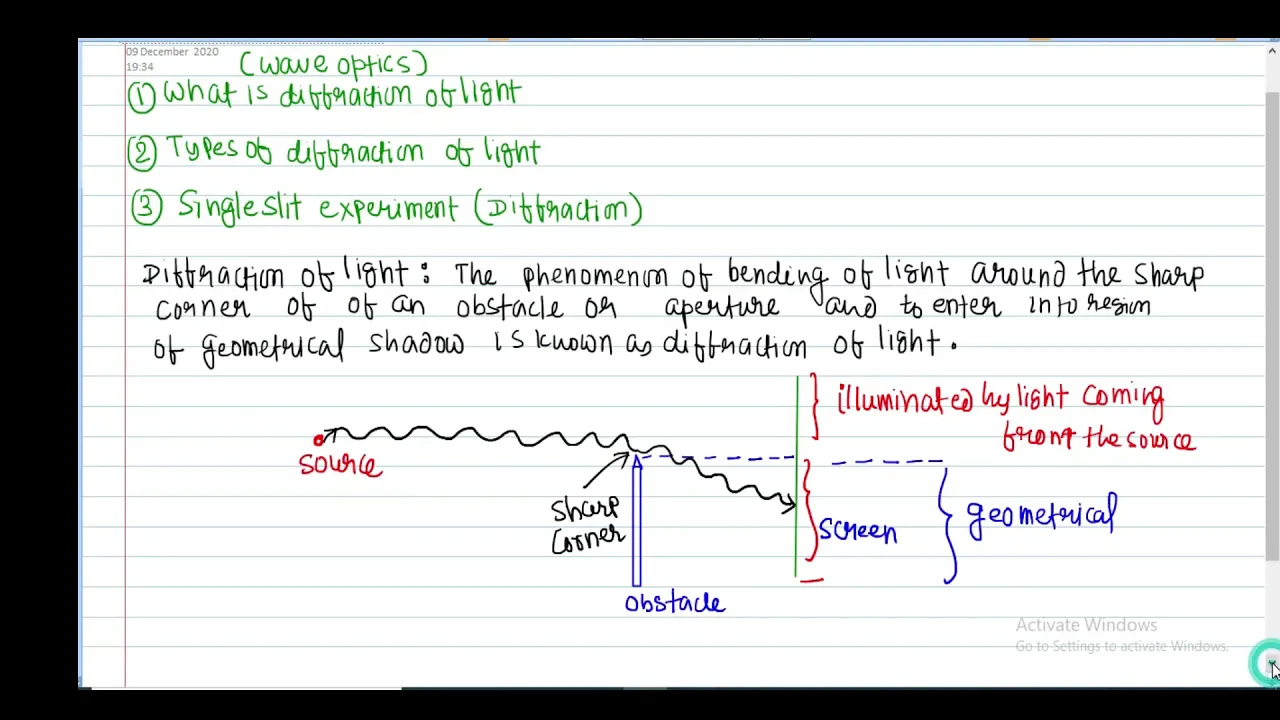 09 December 2020
19:34
(wave optics)
① What is diffraction of light
② Types of diffraction of light
③ Single slit experiment (Diffraction)
Diffraction of light : The phenomenon of bending of light around the sharp
corner of of an obstacle or aperture and to enter into region
of geometrical shadow is known as diffraction of light.
illuminated by light coming
from the source
source
sharp
corner
screen
geometrical
obstacle
Activate Windows
Go to Settings to activate Windows.